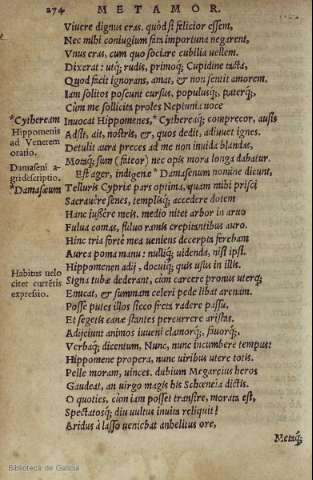 274 METAMOR.
Viuere dignus eras, quòd si felicior essem,
Nec mihi coniugium fata importuna negarent,
Vnus eras, cum quo sociare cubilia uellem.
Dixerat: utq; rudis, primoq; Cupidine tacta,
Quod facit ignorans, amat, & non sentit amorem.
Iam solitos poscunt cursus, populusq;, paterq;,
Cùm me sollicita proles Neptunia uoce
*Cytheream
Inuocat Hippomenes, *Cythereaq; comprecor, ausis
Hippomenis
ad Venerem
oratio.
Adsit, ait, nostris, &, quos dedit, adiuuet ignes.
Detulit aura preces ad me non inuida blandas,
Motaq; sum (fateor) nec opis mora longa dabatur.
Damaseni a-
gri descriptio.
*Damasæum
Est ager, indigenæ *Damasenum nomine dicunt,
Telluris Cypriæ pars optima, quam mihi prisci
Sacrauêre senes, templisq; accedere dotem
Hanc iussêre meis. medio nitet arbor in aruo
Fulua comas, fuluo ramis crepitantibus auro.
Hinc tria fortè mea ueniens decerpta ferebam
Aurea poma manu: nulliq; uidenda, nisi ipsi.
Habitus uelo
citer currētis
expressio.
Hippomenen adij, docuiq; quis usus in illis.
Signa tubæ dederant, cùm carcere pronus uterq;
Emicat, & summam celeri pede libat arenam.
Posse putes illos sicco freta radere passu,
Et segetis canæ stantes percurrere aristas.
Adijciunt animos iuueni clamorq;, fauorq;,
Verbaq; dicentum. Nunc, nunc incumbere tempus:
Hippomene propera, nunc uiribus utere totis.
Pelle moram, uinces. dubium Megareius heros
Gaudeat, an uirgo magis his Schœneia dictis.
O quoties, cùm iam posset transire, morata est,
Spectatosq; diu uultus inuita reliquit!
Aridus à lasso ueniebat anhelitus ore,
Metaq;
Biblioteca de Galicia